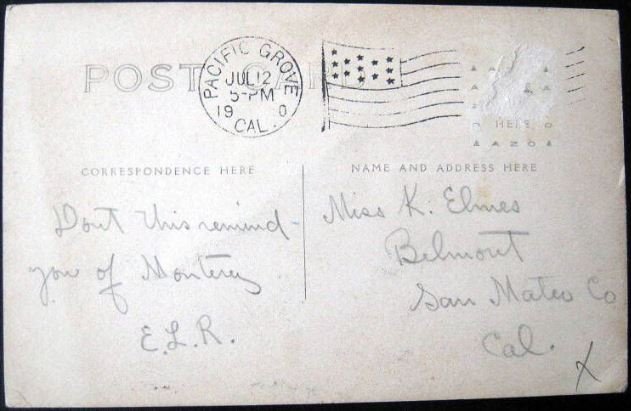 POST
PACIFIC GROVE
JUL 12
5-PM
19 0
CAL.
HERE
AZO
CORRESPONDENCE HERE
NAME AND ADDRESS HERE
Dont this remind
you of Monterey
E.L.R.
Miss K. Elmes
Belmont
San Mateo Co
Cal.
X